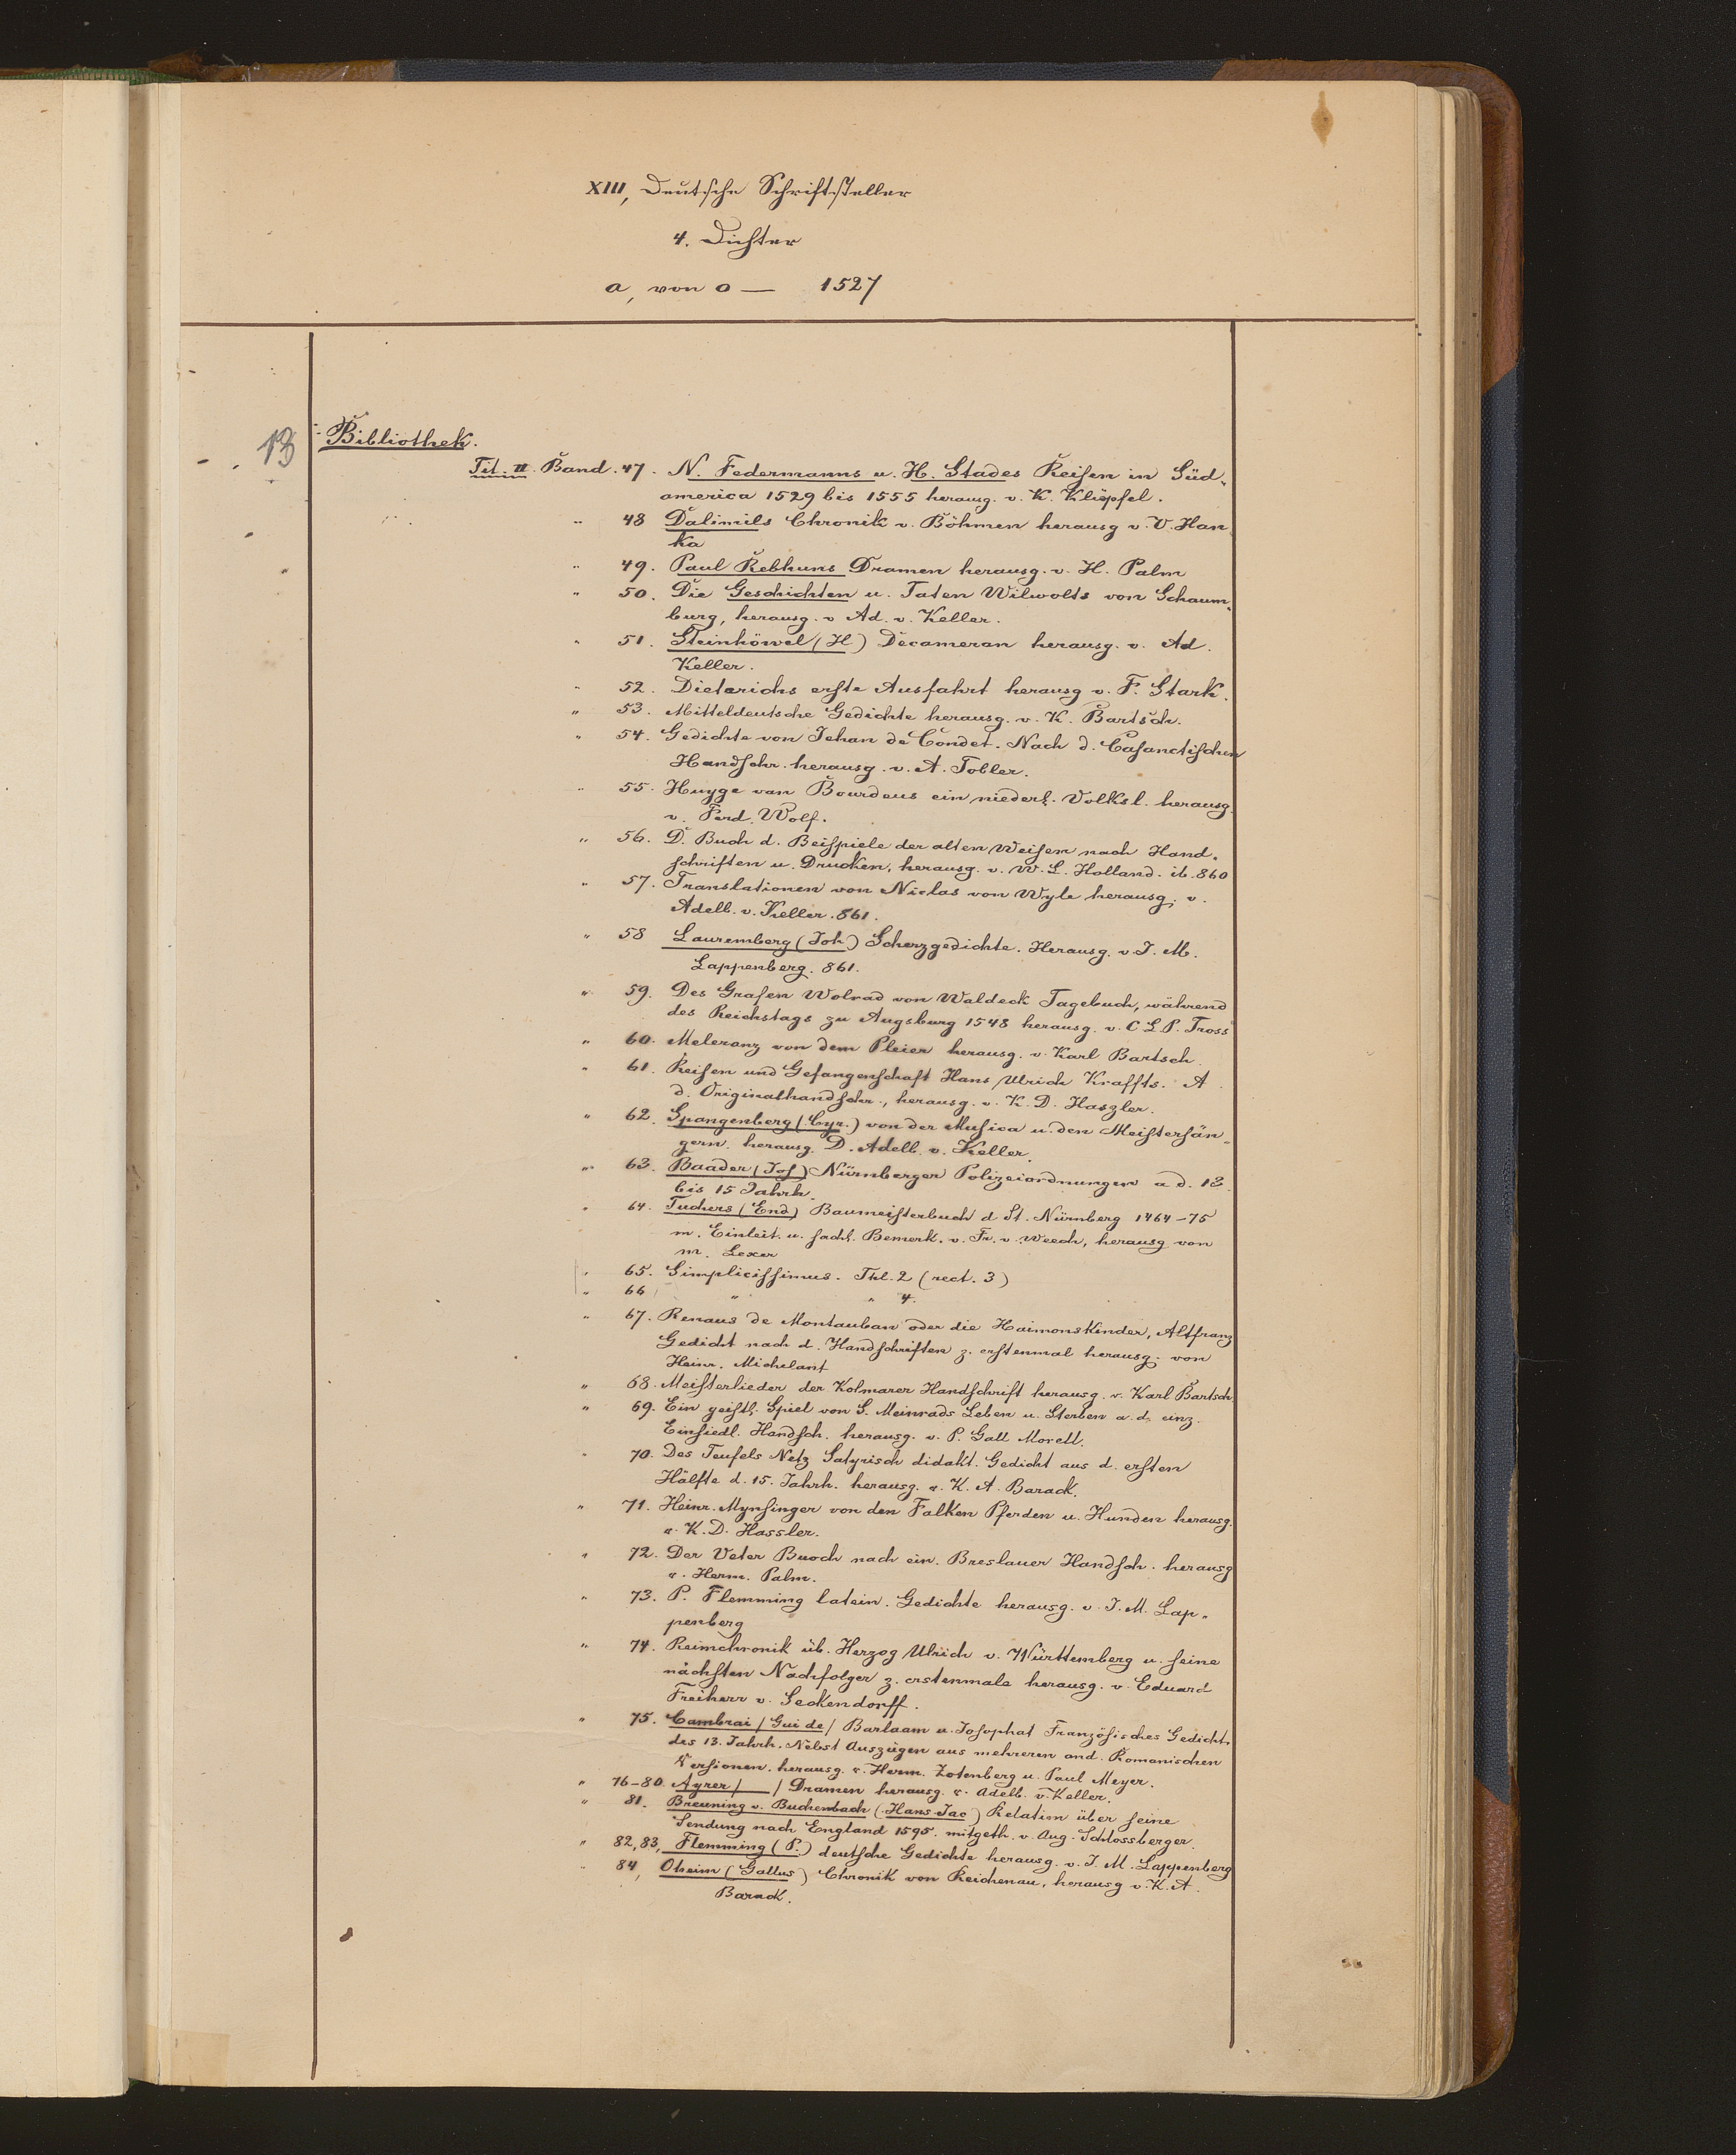 XIII, Deutsche Schriftsteller
4. Dichter
a, von 0 — 1527
13
Bibliothek.
Tit. II. Band. 47. N. Federmanns u. H. Stades Reisen in Süd-
america 1529 bis 1555 herausg. v. K. Klüpfel.
" 48 Dalimils Chronik v. Böhmen herausg v. V. Han
ka
" 49. Paul Rebhuns Dramen herausg. v. H. Palm
" 50. Die Geschichten u. Taten Wilwolts von Schaum-
burg, herausg. v Ad. v. Keller.
" 51. Steinhöwel (H) Decameran herausg. v. Ad.
Keller.
" 52. Dietarichs erste Ausfahrt herausg v. F. Stark.
" 53. Mitteldeutsche Gedichte herausg. v. K. Bartsch.
" 54. Gedichte von Jehan de Condet. Nach d. Casanatischen
Handschr. herausg. v. A. Tobler.
" 55. Huyge van Bourdeus ein niederl. Volksl. herausg.
v. Ferd. Wolf.
" 56. D. Buch d. Beispiele der alten Weisen nach Hand-
schriften u. Drucken, herausg. v. W. L. Holland. ib. 860
" 57. Translationen von Niclas von Wyle herausg. v.
Adelb. v. Keller. 861.
" 58 Lauremberg (Joh) Scherzgedichte. Herausg. v J. M.
Lappenberg. 861.
" 59. Des Grafen Wolrad von Waldeck Tagebuch, während
des Reichstags zu Augsburg 1548 herausg. v. C L. P. Tross
" 60. Meleranz von dem Pleier herausg. v. Karl Bartsch.
" 61. Reisen und Gefangenschaft Hans Ulrich Kraffts. A.
d. Originalhandschr., herausg. v. K. D. Haszler.
" 62. Spangenberg (Cyr.) von der Musica u. den Meistersän-
gern. herausg. D. Adelb. v. Keller.
" 63. Baader (Jos) Nürnberger Polizeiordnungen a d. 13.
bis 15 Jahrh.
" 64. Tuchers (End) Baumeisterbuch d St. Nürnberg 1464-75
m. Einleit. u. sachl. Bemerk. v. Fr. v. Weech, herausg von
M. Lexer
" 65. Simplicissimus. Thl. 2 (rect. 3)
" 66 " " 4.
" 67. Renaus de Montauban oder die Haimonskinder, Altfranz
Gedicht nach d. Handschriften z. erstenmal herausg. von
Heinr. Michelant
" 68. Meisterlieder der Kolmarer Handschrift herausg. v. Karl Bartsch
" 69. Ein geistl. Spiel von S. Meinrads Leben u. Sterben a. d. einz.
Einsiedl. Handsch. herausg. v. P. Gall Morell.
" 70. Des Teufels Netz Satyrisch didakt. Gedicht aus d. ersten
Hälfte d. 15. Jahrh. herausg. v. K. A. Barack.
" 71. Heinr. Mynsinger von den Falken Pferden u. Hunden herausg.
v. K. D. Hassler.
" 72. Der Veter Buoch nach ein. Breslauer Handsch. herausg
v. Herm. Palm.
" 73. P. Flemming latein. Gedichte herausg. v. J. M. Lap-
penberg
" 74. Reimchronik üb. Herzog Ulrich v. Württemberg u. seine
nächsten Nachfolger z. erstenmale herausg. v. Eduard
Freiherr v. Seckendorff.
" 75. Cambrai / Gui de / Barlaam u. Josophat Französisches Gedicht.
des 13. Jahrh. Nebst Auszügen aus mehreren and. Romanischen
Versionen. herausg. v. Herm. Zotenberg u. Paul Meyer.
" 76-80. Ayrer / — / Dramen herausg. v. Adelb. v. Keller.
" 81. Breuning v. Buchenbach (Hans Jac) Relation über seine
Sendung nach England 1595. mitgeth. v. Aug. Schlossberger.
" 82,83, Flemming (P.) deutsche Gedichte herausg. v. J. M. Lappenberg
" 84, Oheim (Gallus) Chronik von Reichenau, herausg v. K. A.
Barack.